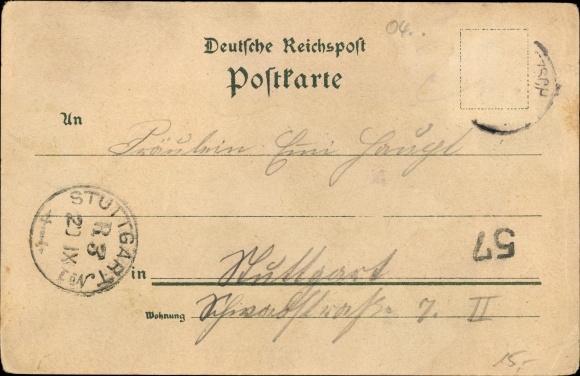 04.
Deutsche Reichspost
Postkarte
An
Fräulein Emi Haugt
STUTTGART
R3
20 IX
No 1
57
in Stuttgart
Wohnung Schwabstraße 7. II
15,-